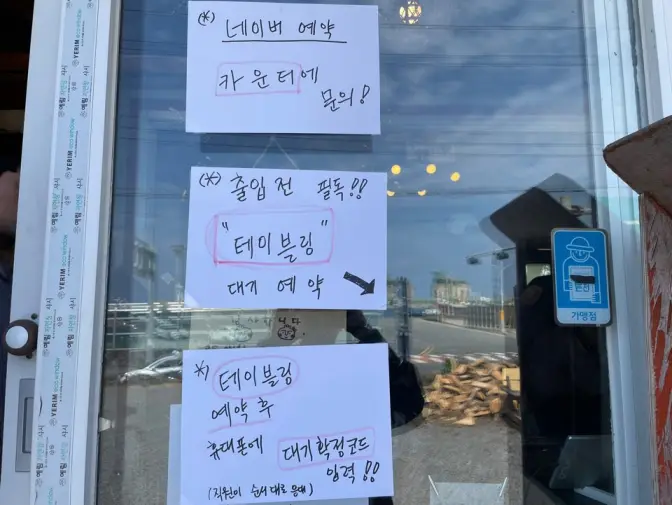 (*) 네이버 예약
카운터에
문의!
(*) 출입전 필독!!
"테이블링"
대기 예약
*) 테이블링
예약 후
휴대폰에 대기확정코드
입력!!
(직원이 순서대로 응대)
가맹점
YERIM
예림
샤시